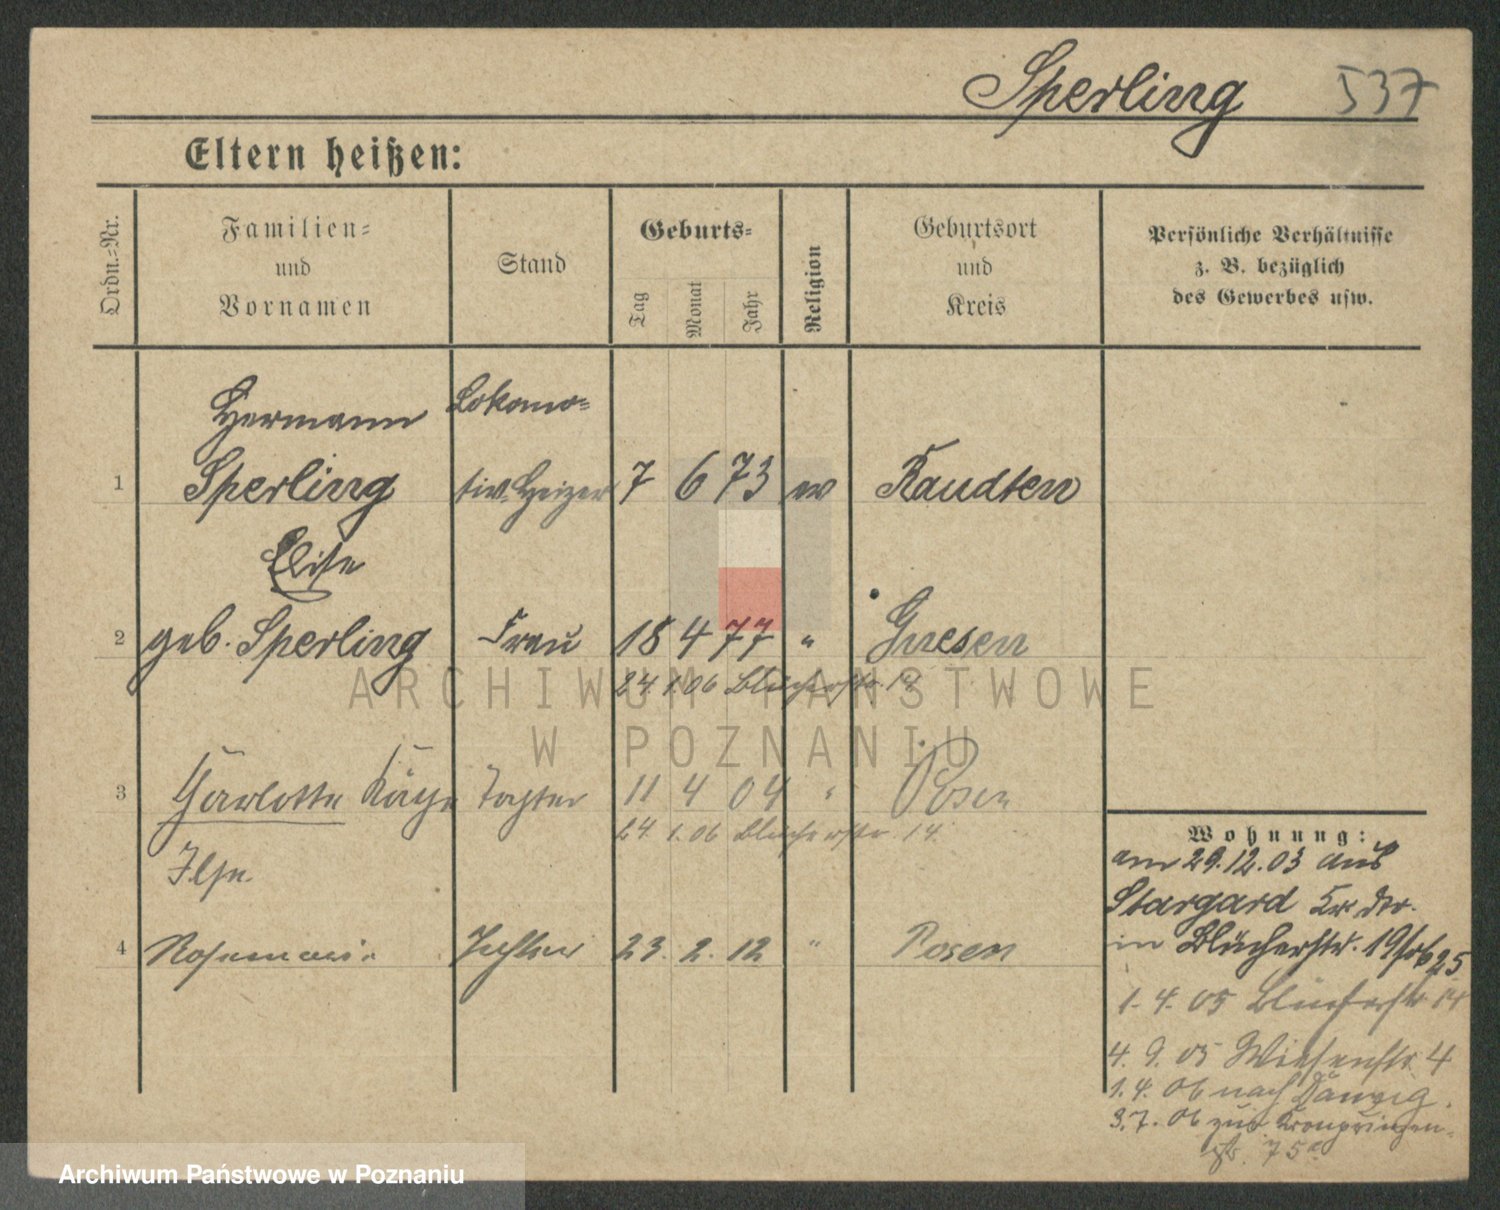 Sperling 537
Eltern heißen:
Ordn.-Nr.
Familien-
und
Vornamen
Stand
Geburts-
Tag
Monat
Jahr
Religion
Geburtsort
und
Kreis
Persönliche Verhältnisse
z. B. bezüglich
des Gewerbes usw.
Hermann Lokomo-
1 Sperling tiv-Heizer 7 6 73 ev Raudten
Elise
2 geb. Sperling Frau 18 4 77 " Gnesen
24.1.06 Blücherstr. 14
3 Charlotte Käthe Tochter 11 4 04 " Posen
24.1.06 Blücherstr. 14.
Ilse
4 Rosemarie Tochter 23. 2. 12 " Posen
Wohnung:
am 29.12.03 aus
Stargard Kr.
in Blücherstr. 19
1. 4. 05 Blücherstr 14
4. 9. 05 Wiesenstr. 4
1. 4. 06 nach Danzig.
3. 7. 06 zur Kronprinzen-
str. 75a
ARCHIWUM PAŃSTWOWE
W POZNANIU
Archiwum Państwowe w Poznaniu